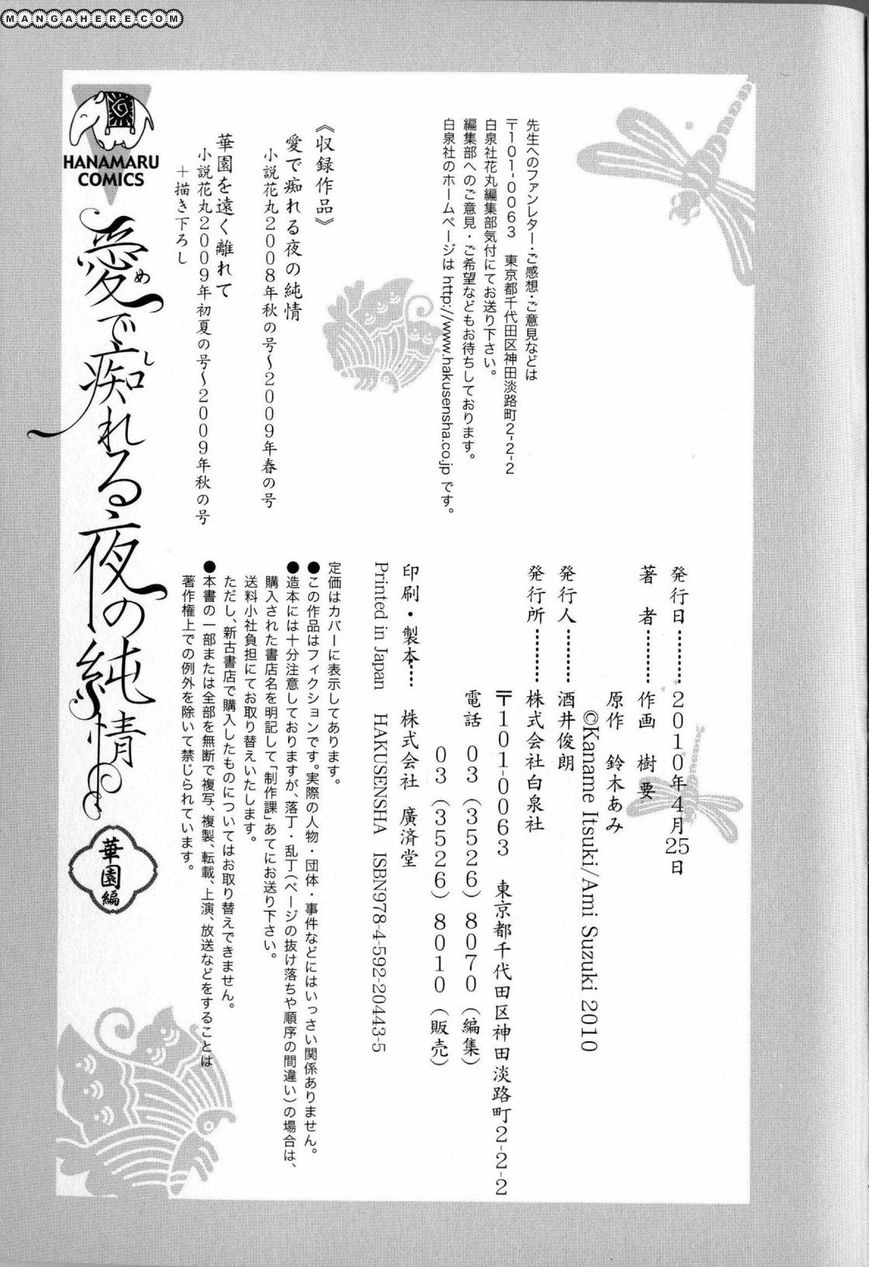 MANGAHERE.COM
HANAMARU
COMICS
愛で痴れる夜の純情
め
し
華園編
先生へのファンレター・ご感想・ご意見などは
〒101-0063 東京都千代田区神田淡路町2-2-2
白泉社花丸編集部気付にてお送り下さい。
編集部へのご意見・ご希望などもお待ちしております。
白泉社のホームページは http://www.hakusensha.co.jp です。
《収録作品》
愛で痴れる夜の純情
小説花丸2008年秋の号～2009年春の号
華園を遠く離れて
小説花丸2009年初夏の号～2009年秋の号
＋描き下ろし
発行日………2010年4月25日
著 者………作画 樹要
原作 鈴木あみ
©Kaname Itsuki/Ami Suzuki 2010
発行人………酒井俊朗
発行所………株式会社白泉社
〒101-0063 東京都千代田区神田淡路町2-2-2
電話 03（3526）8070（編集）
03（3526）8010（販売）
印刷・製本…… 株式会社 廣済堂
Printed in Japan HAKUSENSHA ISBN978-4-592-20443-5
定価はカバーに表示してあります。
●この作品はフィクションです。実際の人物・団体・事件などにはいっさい関係ありません。
●造本には十分注意しておりますが、落丁・乱丁（ページの抜け落ちや順序の間違い）の場合は、
購入された書店名を明記して「制作課」あてにお送り下さい。
送料小社負担にてお取り替えいたします。
ただし、新古書店で購入したものについてはお取り替えできません。
●本書の一部または全部を無断で複写、複製、転載、上演、放送などをすることは
著作権上での例外を除いて禁じられています。